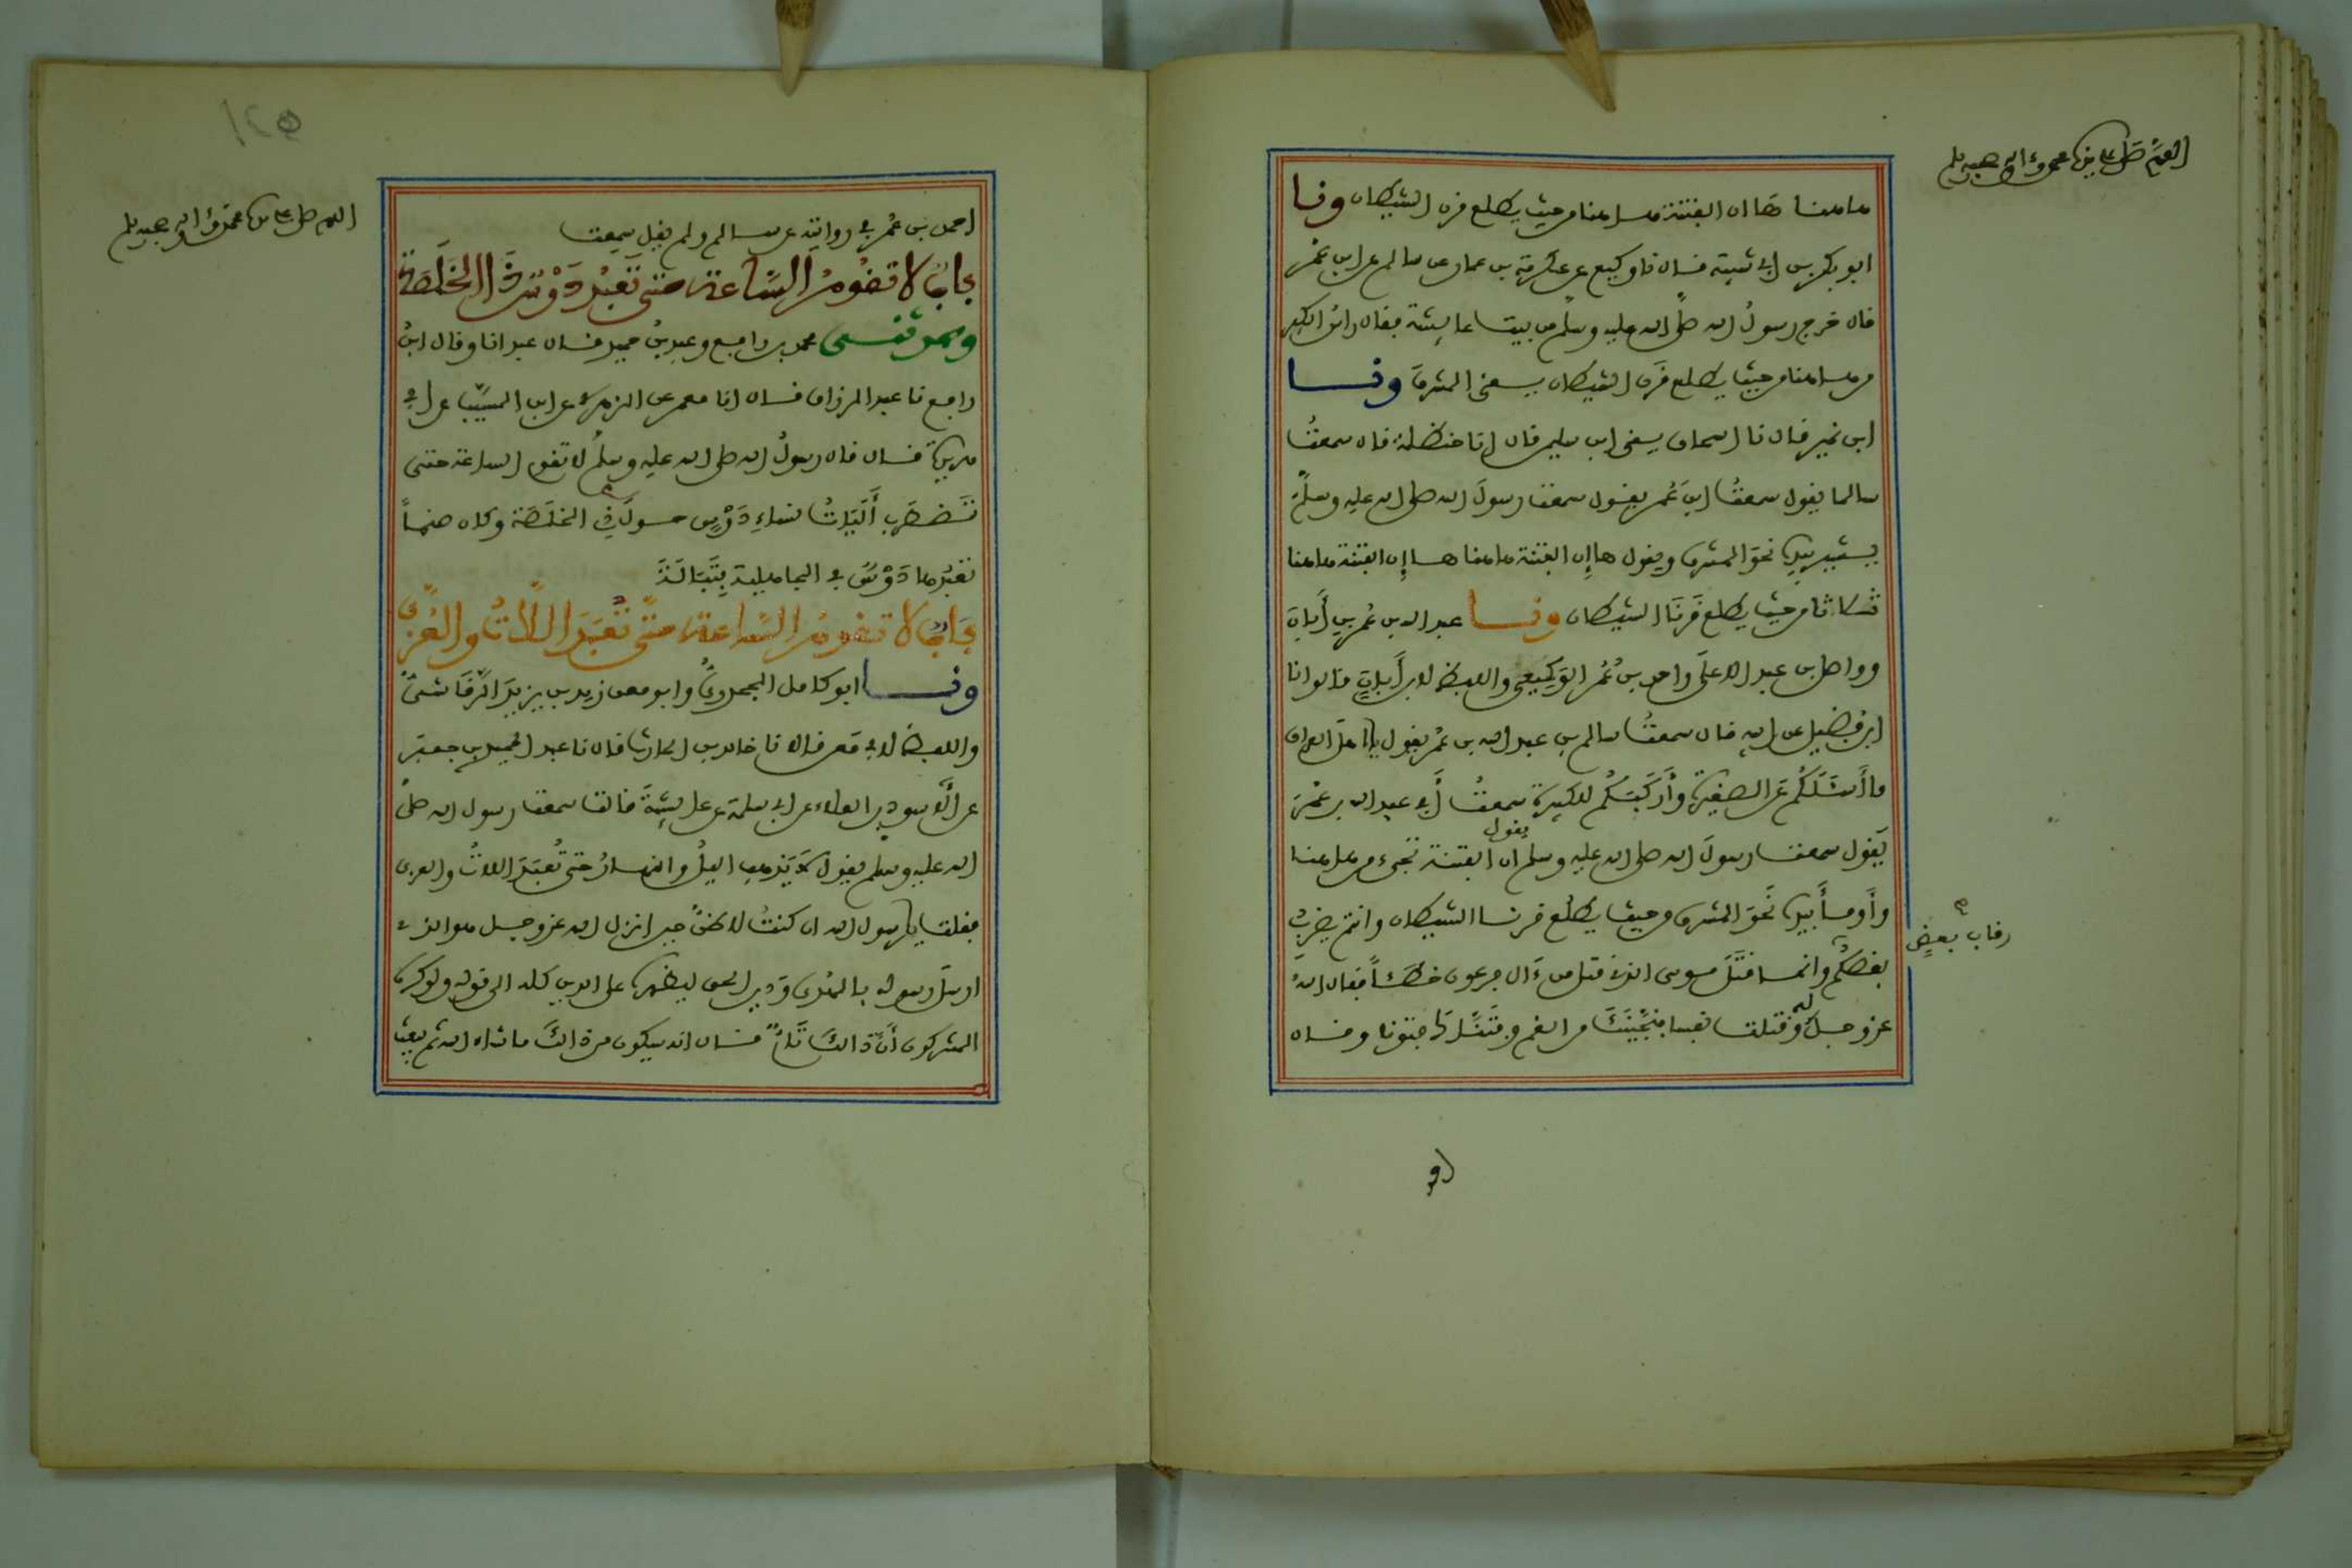 اللهم صل على سيدنا محمد وءاله وصحبه وسلم
هاهنا ها ان الفتنة هاهنا من حيث يطلع قرن الشيطان ونا
ابو بكر بن ابي شيبة قال نا وكيع عن عكرمة بن عمار عن سالم عن ابن عمر
قال خرج رسول الله صلى الله عليه وسلم من بيت عايشة فقال راس الكفر
من هاهنا من حيث يطلع قرن الشيطان يعني المشرق ونا
ابن نمير قال نا اسحاق يعني ابن سليمن قال انا حنظلة قال سمعت
سالما يقول سمعت ابن عمر يقول سمعت رسول الله صلى الله عليه وسلم
يشير بيده نحو المشرق ويقول ها إن الفتنة هاهنا ها إن الفتنة هاهنا
ثلاثا من حيث يطلع قرنا الشيطان ونا عبد الله بن عمر بن أبان
وواصل بن عبد الاعلى واحمد بن عمر الوكيعي واللفظ لابن أبان قالوا نا
ابن فضيل عن ابيه قال سمعت سالم بن عبد الله بن عمر يقول يا اهل العراق
ما أسئلكم عن الصغيرة وأركبكم للكبيرة سمعت أبي عبد الله بن عمر
يقول سمعت رسول الله صلى الله عليه وسلم يقول ان الفتنة تجيء من هاهنا
وأومأ بيده نحو المشرق من حيث يطلع قرنا الشيطان وانتم يضرب
بعضكم رقاب بعض وانما قتل موسى الذي قتل من ءال فرعون خطئا فقال الله
عز وجل له وقتلت نفسا فنجيناك من الغم وفتناك فتونا وقال
اللهم صل على سيدنا محمد وءاله وصحبه وسلم
احمد بن عمر في روايته عن سالم ولم يقل سمعت
باب لا تقوم الساعة حتى تعبد دوس ذا الخلصة
وحدثني محمد بن رافع وعبد بن حميد قال عبد انا وقال ابن
رافع نا عبد الرزاق قال انا معمر عن الزهري عن ابن المسيب عن ابي
هريرة قال قال رسول الله صلى الله عليه وسلم لا تقوم الساعة حتى
تضطرب أليات نساء دوس حول ذي الخلصة وكان صنما
تعبدها دوس في الجاهلية بتبالة
باب لا تقوم الساعة حتى تعبد اللات والعزى
ونا ابو كامل الجحدري وابو معن زيد بن يزيد الرقاشي
واللفظ لابي معن قالا نا خالد بن الحارث قال نا عبد الحميد بن جعفر
عن الأسود بن العلاء عن ابي سلمة عن عايشة قالت سمعت رسول الله صلى
الله عليه وسلم يقول لا يذهب اليل والنهار حتى تعبد اللات والعزى
فقلت يا رسول الله ان كنت لاظن حين انزل الله عز وجل هو الذي
ارسل رسوله بالهدى ودين الحق ليظهره على الدين كله الى قوله ولو كره
المشركون أن ذالك تام قال انه سيكون من ذالك ما شاء الله ثم يبعث